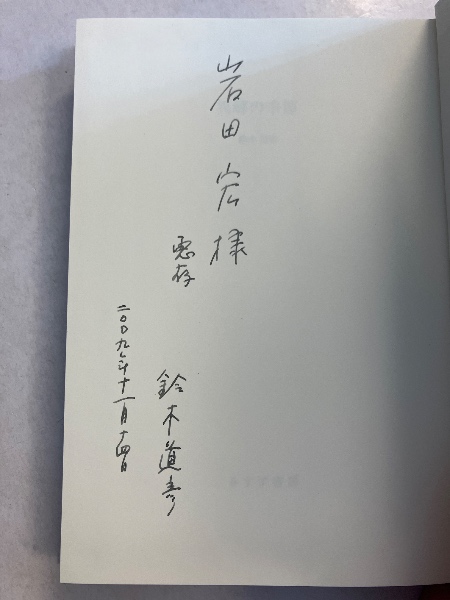 岩田宏様
恵存
鈴木道彦
二〇〇九年十一月十四日